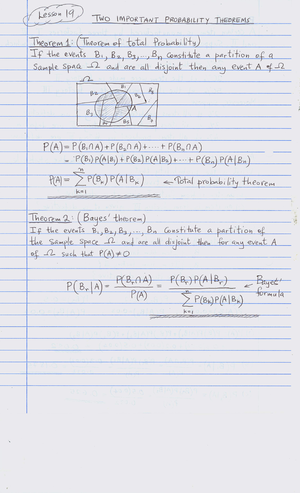 Lesson 19
TWO IMPORTANT PROBABILITY THEOREMS
Theorem 1: (Theorem of total Probability)
If the events B₁, B₂, B₃, ..., Bₙ constitute a partition of a
Sample space Ω and are all disjoint then any event A of Ω
Ω
A
P(A) = P(B₁∩A) + P(B₂∩A) + ····· + P(Bₙ∩A)
= P(B₁) P(A|B₁) + P(B₂) P(A|B₂) + ··· + P(Bₙ) P(A|Bₙ)
P(A) = ∑ₖ₌₁ⁿ P(Bₖ) P(A|Bₖ) ← Total probability theorem
Theorem 2: (Bayes' theorem)
If the events B₁, B₂, B₃, ..., Bₙ constitute a partition of
the sample space Ω and are all disjoint then for any event A
of Ω such that P(A)≠0
P(Bᵣ|A) = P(Bᵣ∩A) / P(A) = P(Bᵣ) P(A|Bᵣ) / ∑ₖ₌₁ⁿ P(Bₖ) P(A|Bₖ) ← Bayes' formula